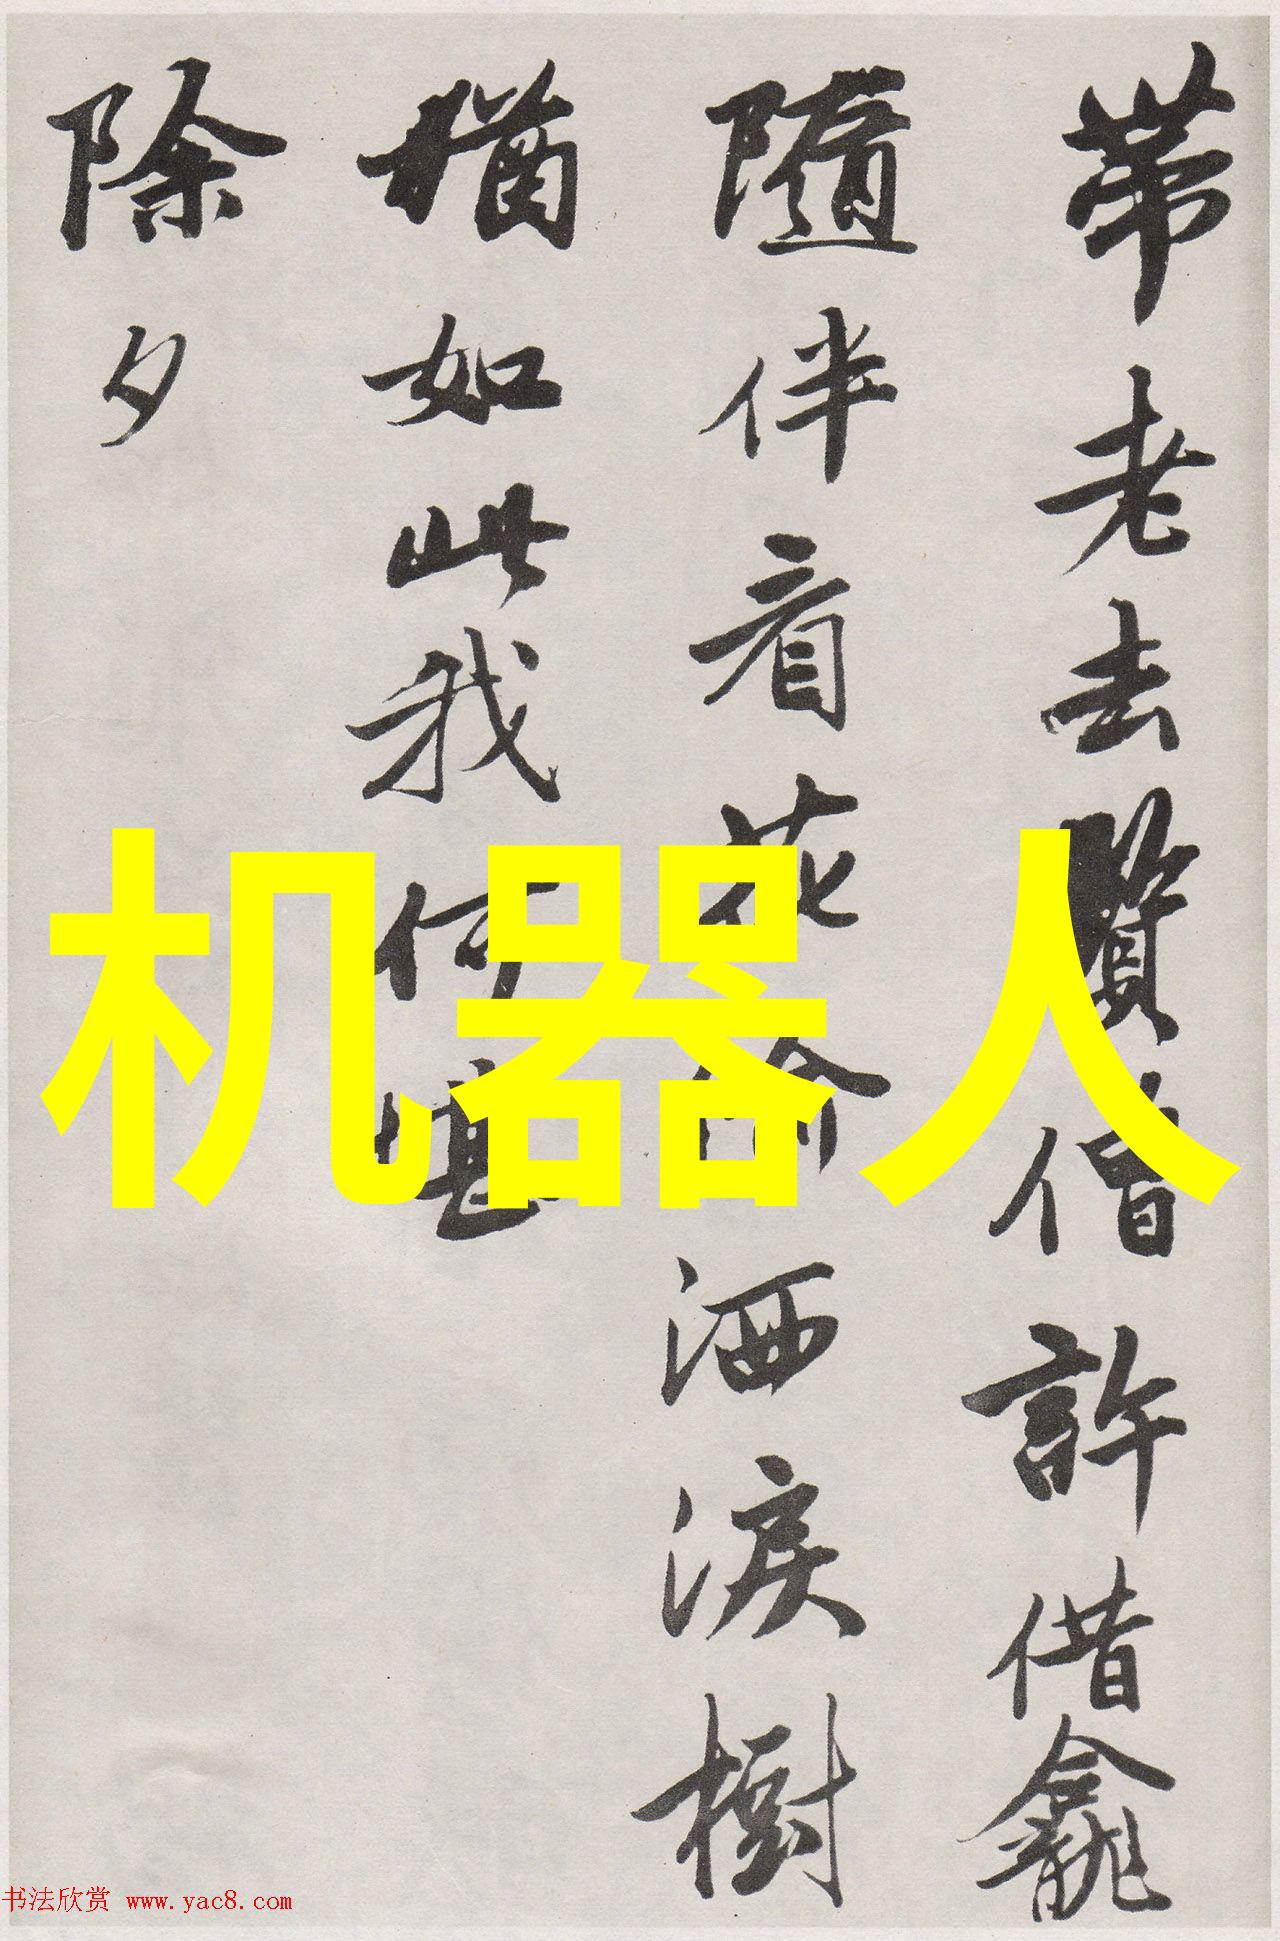 帶老去賢僧許借龕
隨伴看花偷洒淚樹
猶如此我何堪
除夕
机器人
书法欣赏 www.yac8.com